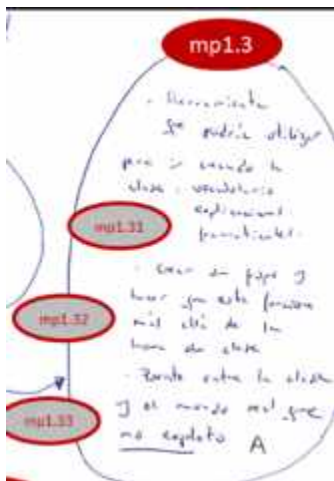 mp1.3
- Herramienta
que podría utilizar
para ir creando la
clase: vocabulario
explicaciones
gramaticales.
mp1.31
- Crear un grupo y
hacer que este funcione
mp1.32
más allá de la
hora de clase
- Puente entre la clase
mp1.33
y el mundo real que
no exploto A